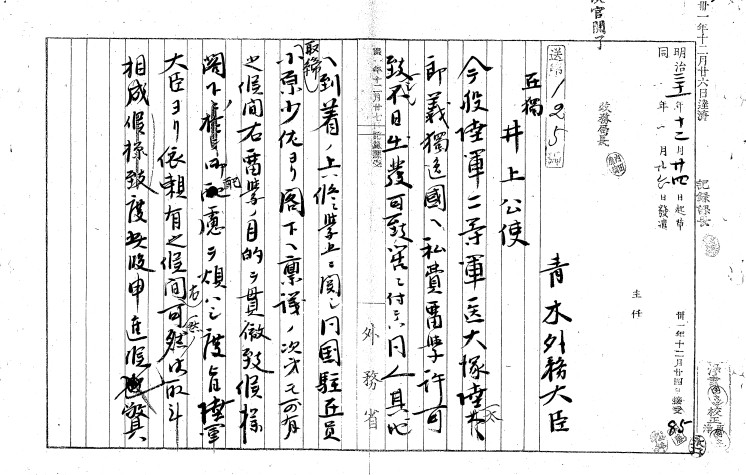 卅一年十二月廿六日達濟
記録課長
明治三十一年十二月廿四日起草
同 年 一月 日發遣
主任
卅一年十二月廿四日接受
政務局長
送第125號
青木外務大臣
在獨
井上公使
今般陸軍二等軍医大塚陸太
郎義獨逸國ヘ私費留学許可
致不日出発可致筈ニ付テハ同人其地
ヘ到着ノ上ハ修学上ニ関シ同国駐在員
小原少佐ヨリ閣下ヘ稟議ノ次第モ可有
之候間右留学ノ目的ヲ貫徹致候様
閣下ノ御配慮ヲ煩ハシ度旨陸軍
大臣ヨリ依頼有之候間可然御取斗
相成候様致度此段申進候敬具
外務省